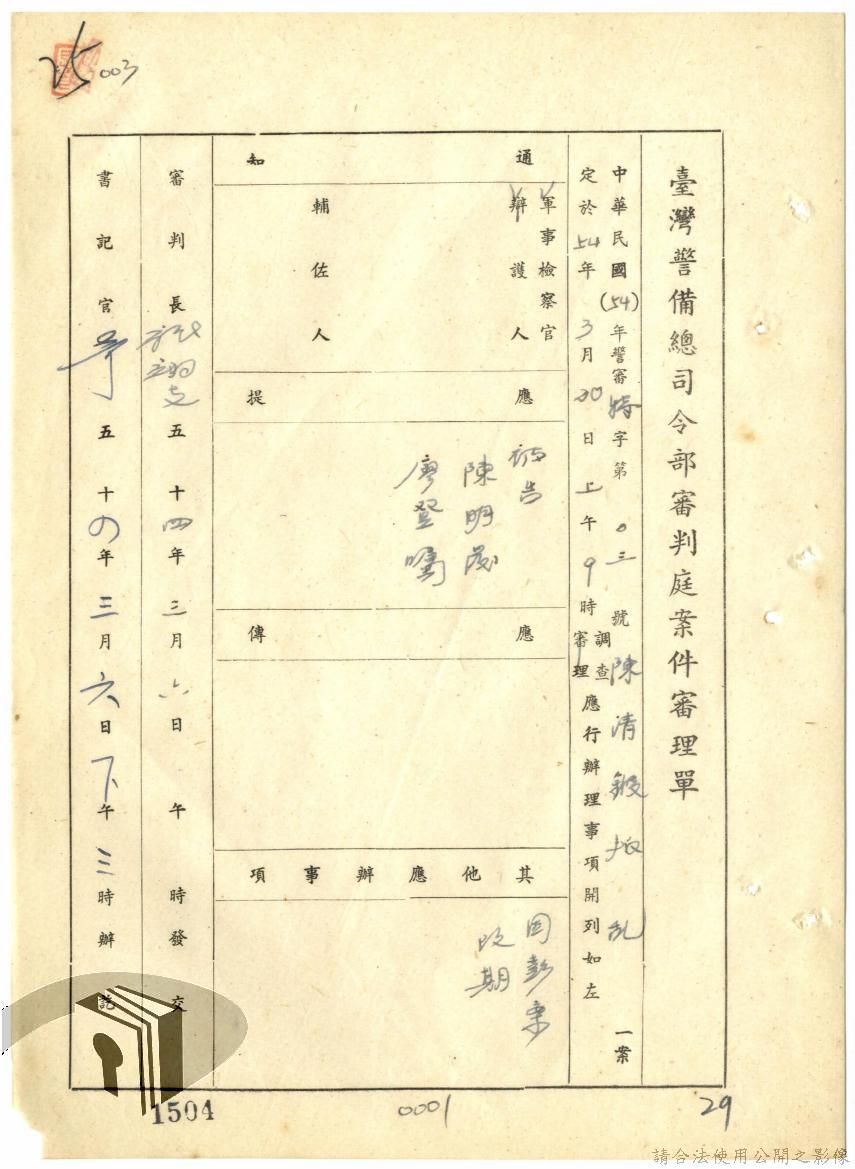 003
臺灣警備總司令部審判庭案件審理單
中華民國(54)年警審特字第03號陳清鍛叛乱一案
定於54年3月20日上午9時調查審理應行辦理事項開列如左
通知
軍事檢察官
辯護人
輔佐人
應提
被告
陳明
廖登
應傳
其他應辦事項
因彭案
改期
審判長 五十四年三月六日 午 時發交
書記官 五十四年三月六日下午三時辦訖
1504
0001
29
請合法使用公開之影像